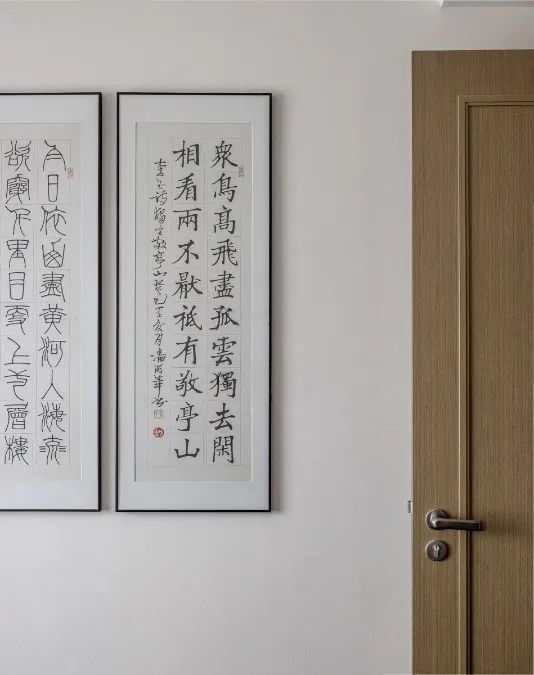 衆鳥髙飛盡孤雲獨去閑
相看兩不厭祗有敬亭山
李白詩獨坐敬亭山癸巳
白日依山盡黃河入海流
欲窮千里目更上一層樓